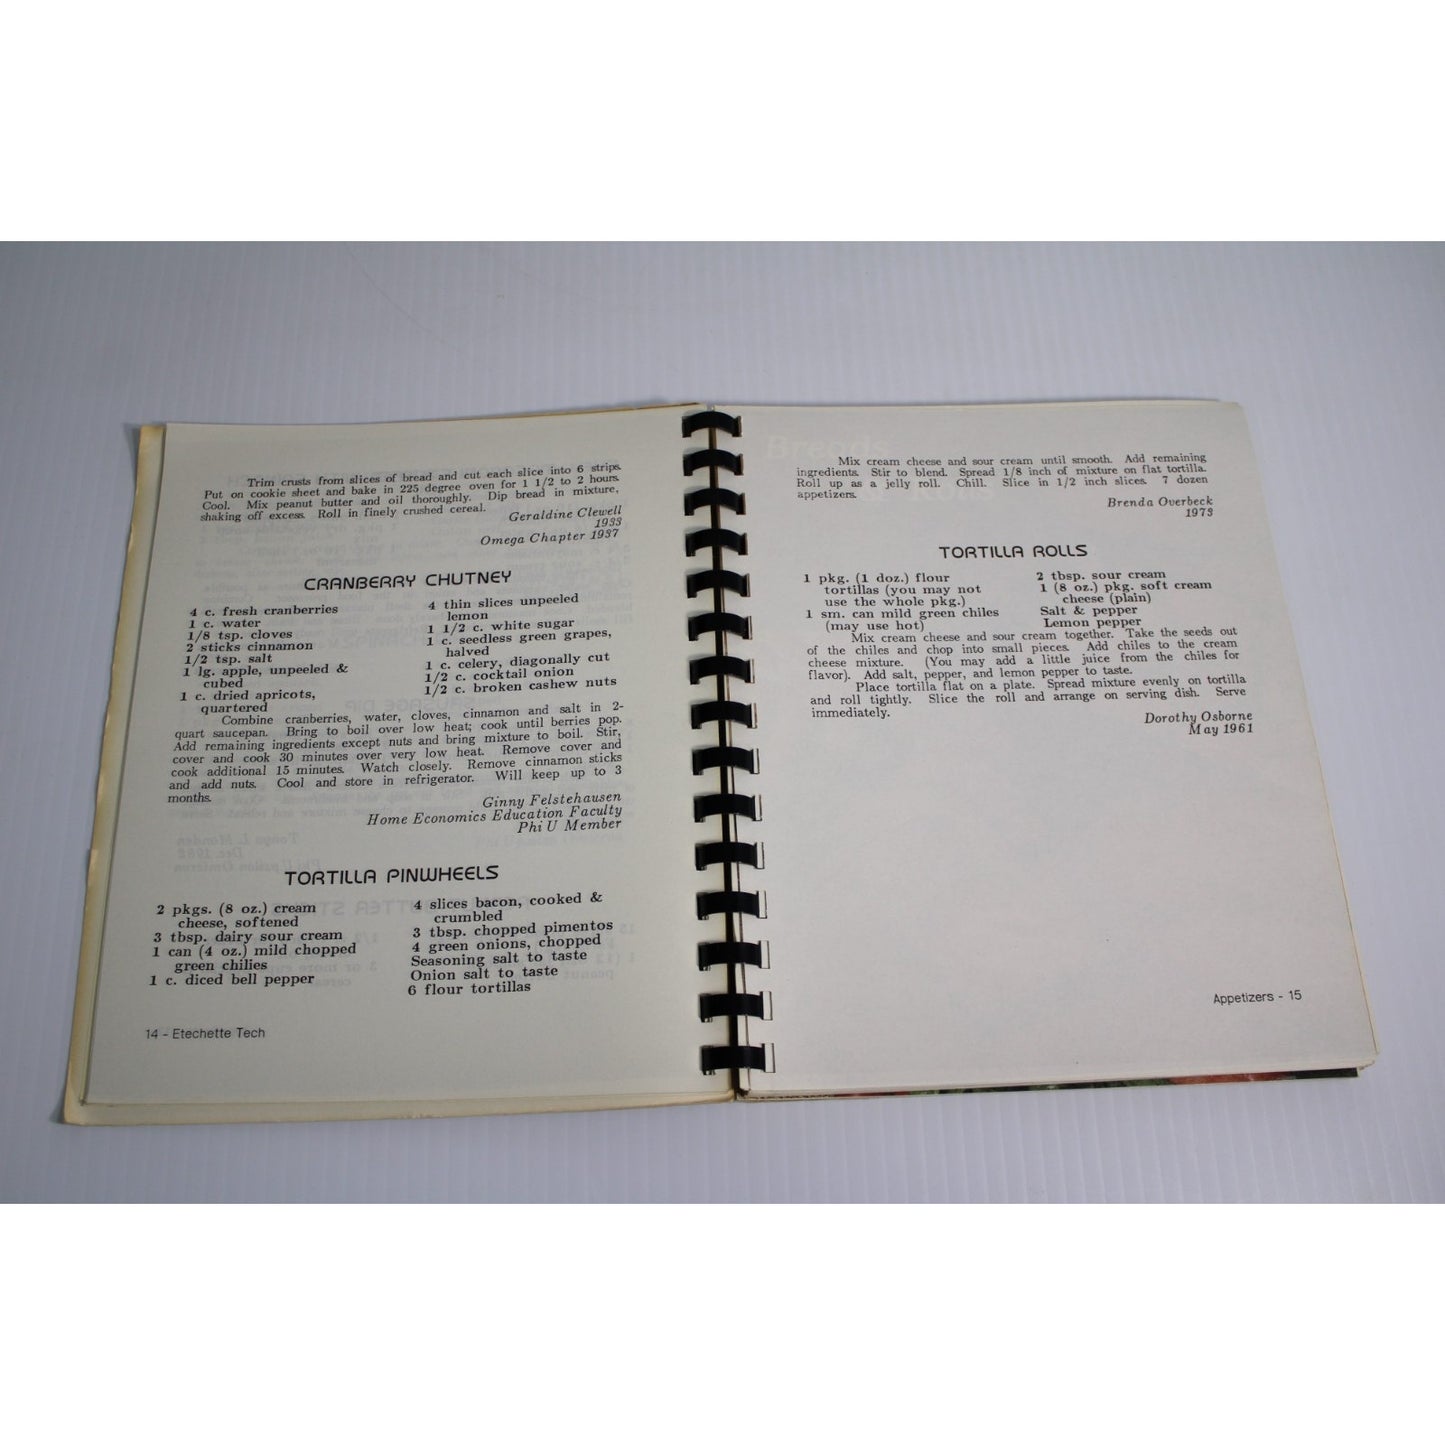 Trim crusts from slices of bread and cut each slice into 6 strips.
Put on cookie sheet and bake in 225 degree oven for 1 1/2 to 2 hours.
Cool. Mix peanut butter and oil thoroughly. Dip bread in mixture,
shaking off excess. Roll in finely crushed cereal.
Geraldine Clewell
1933
Omega Chapter 1937
CRANBERRY CHUTNEY
4 c. fresh cranberries
1 c. water
1/8 tsp. cloves
2 sticks cinnamon
1/2 tsp. salt
1 lg. apple, unpeeled &
cubed
1 c. dried apricots,
quartered
4 thin slices unpeeled
lemon
1 1/2 c. white sugar
1 c. seedless green grapes,
halved
1 c. celery, diagonally cut
1/2 c. cocktail onion
1/2 c. broken cashew nuts
Combine cranberries, water, cloves, cinnamon and salt in 2-
quart saucepan. Bring to boil over low heat; cook until berries pop.
Add remaining ingredients except nuts and bring mixture to boil. Stir,
cover and cook 30 minutes over very low heat. Remove cover and
cook additional 15 minutes. Watch closely. Remove cinnamon sticks
and add nuts. Cool and store in refrigerator. Will keep up to 3
months.
Ginny Felstehausen
Home Economics Education Faculty
Phi U Member
TORTILLA PINWHEELS
2 pkgs. (8 oz.) cream
cheese, softened
3 tbsp. dairy sour cream
1 can (4 oz.) mild chopped
green chilies
1 c. diced bell pepper
4 slices bacon, cooked &
crumbled
3 tbsp. chopped pimentos
4 green onions, chopped
Seasoning salt to taste
Onion salt to taste
6 flour tortillas
14 - Etechette Tech
Breads
Rolls
Mix cream cheese and sour cream until smooth. Add remaining
ingredients. Stir to blend. Spread 1/8 inch of mixture on flat tortilla.
Roll up as a jelly roll. Chill. Slice in 1/2 inch slices. 7 dozen
appetizers.
Brenda Overbeck
1973
TORTILLA ROLLS
1 pkg. (1 doz.) flour
tortillas (you may not
use the whole pkg.)
1 sm. can mild green chiles
(may use hot)
2 tbsp. sour cream
1 (8 oz.) pkg. soft cream
cheese (plain)
Salt & pepper
Lemon pepper
Mix cream cheese and sour cream together. Take the seeds out
of the chiles and chop into small pieces. Add chiles to the cream
cheese mixture. (You may add a little juice from the chiles for
flavor). Add salt, pepper, and lemon pepper to taste.
Place tortilla flat on a plate. Spread mixture evenly on tortilla
and roll tightly. Slice the roll and arrange on serving dish. Serve
immediately.
Dorothy Osborne
May 1961
Appetizers - 15